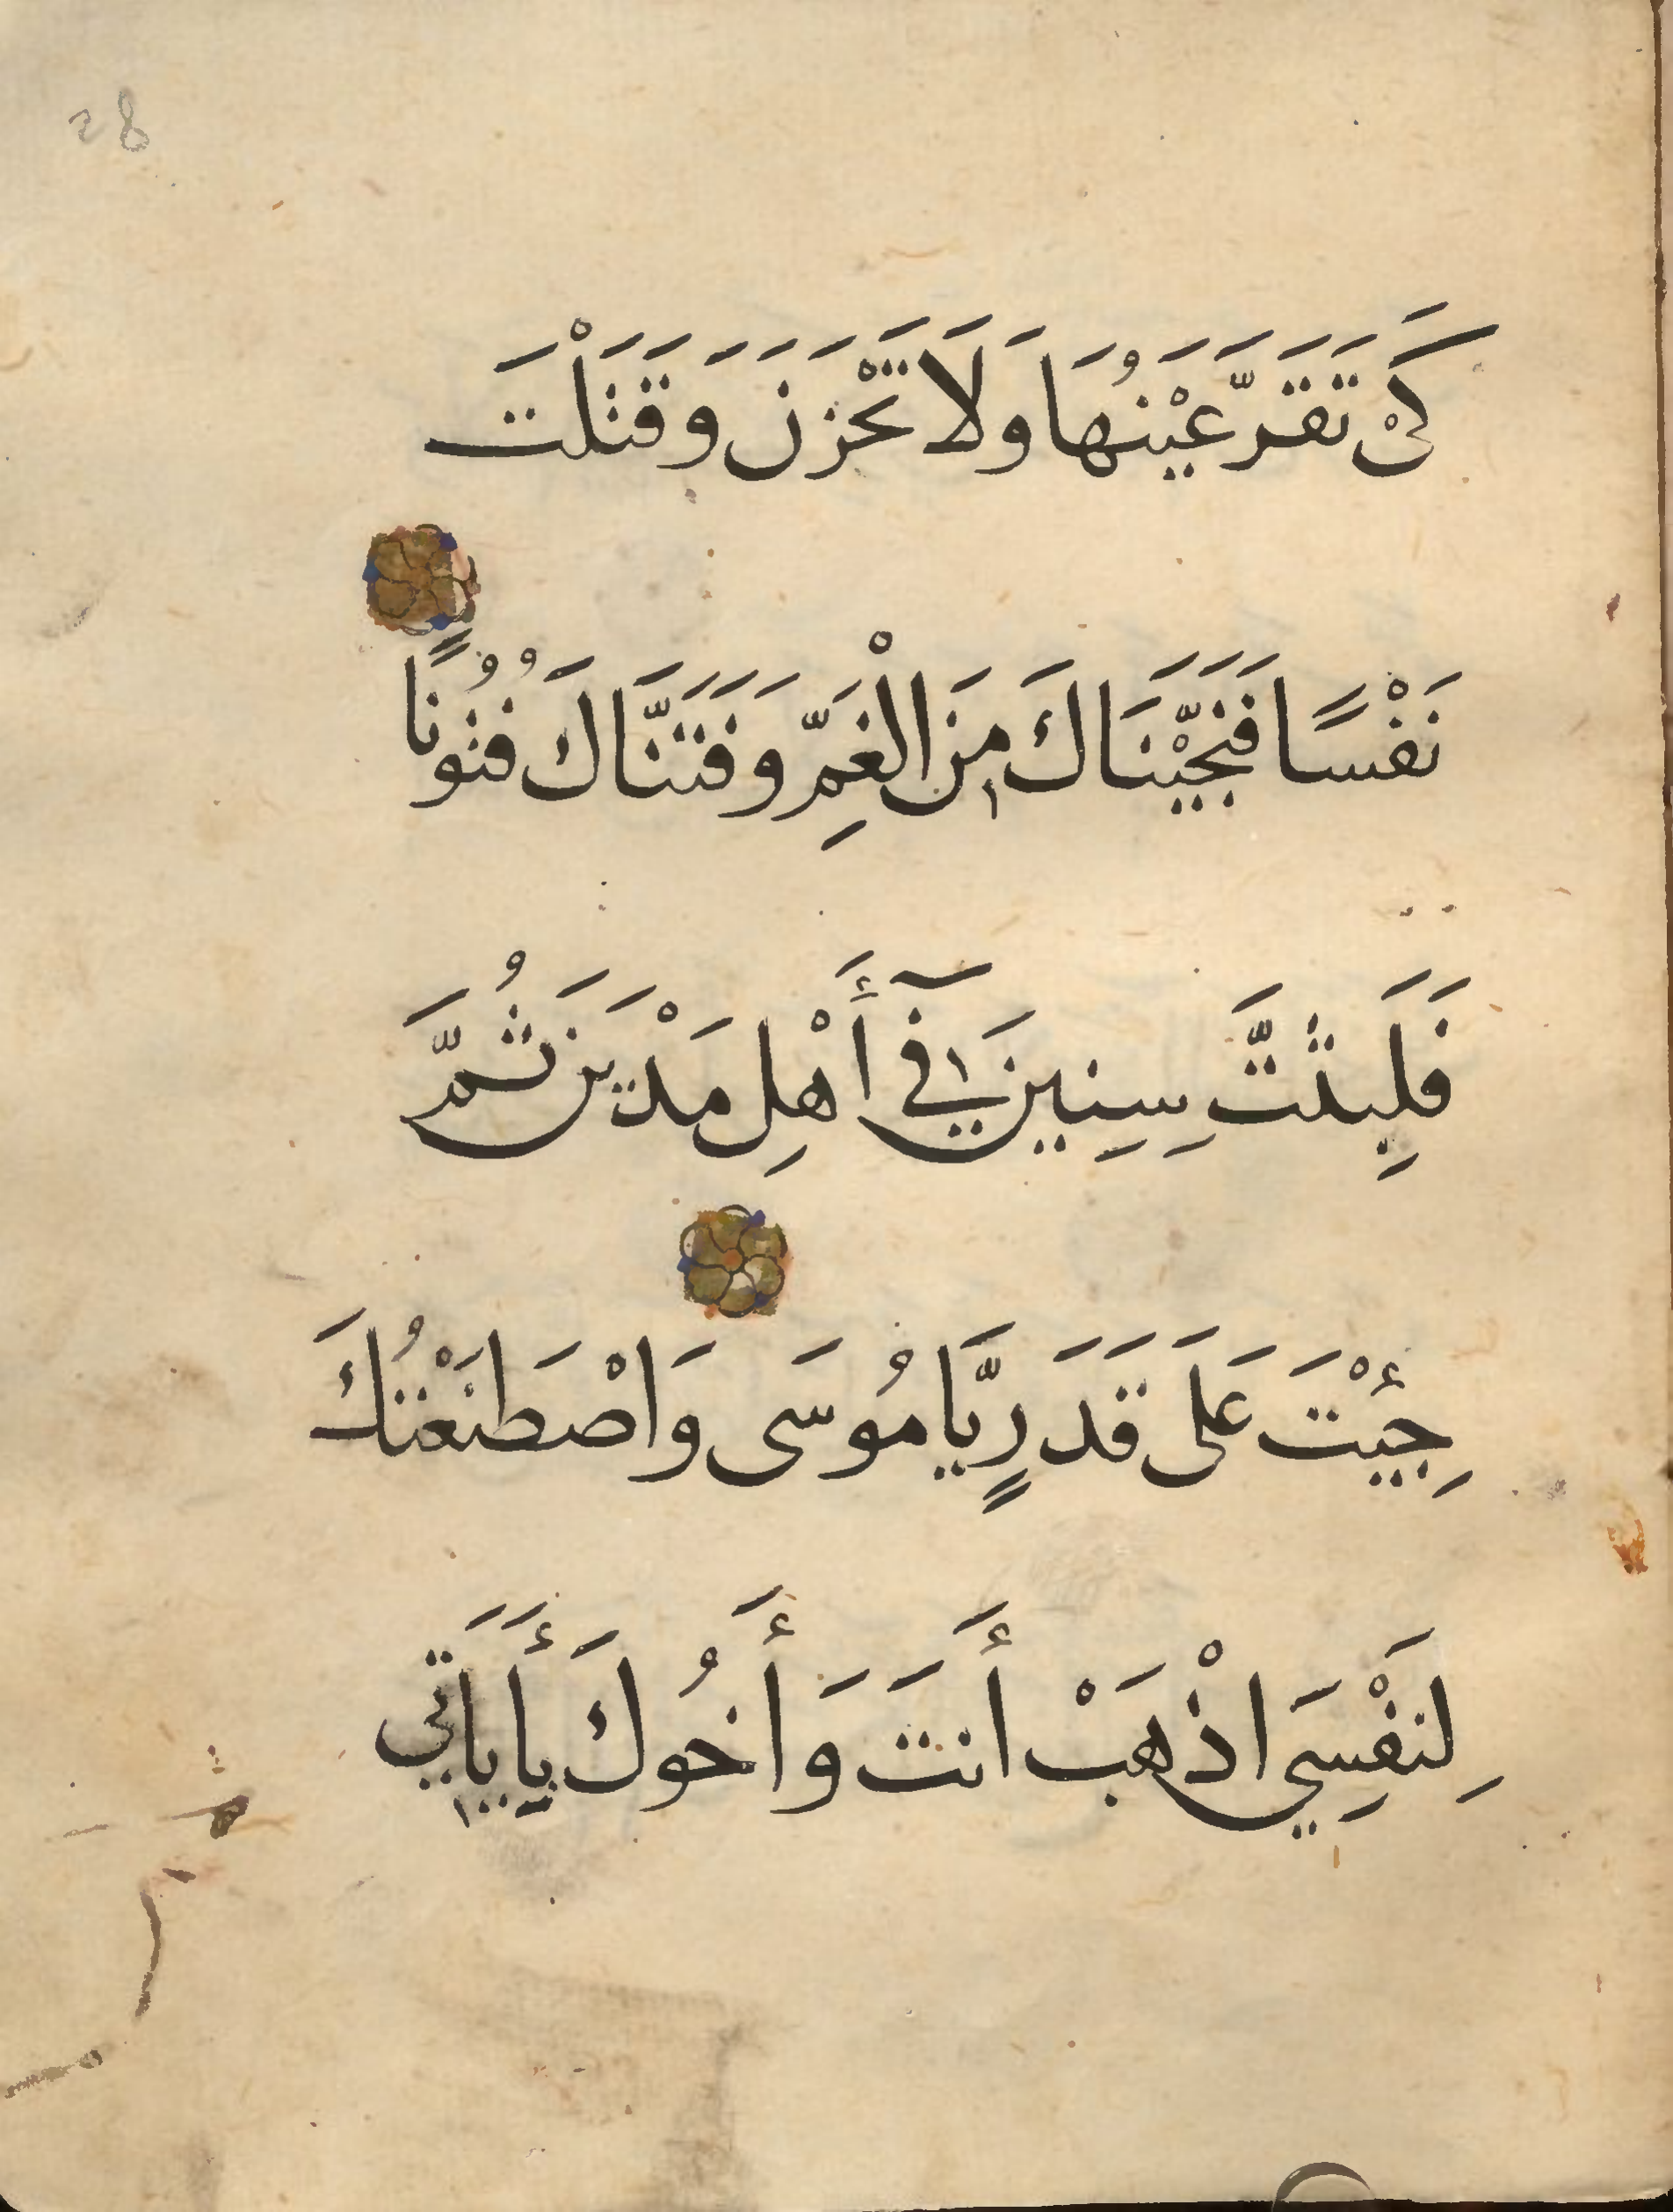 28
كَىْ تَقَرَّ عَيْنُهَا وَلَا تَحْزَنَ وَقَتَلْتَ
نَفْسًا فَنَجَّيْنَاكَ مِنَ الْغَمِّ وَفَتَنَّاكَ فُتُونًا
فَلَبِثْتَّ سِنِينَ فِيٓ أَهْلِ مَدْيَنَ ثُمَّ
جِئْتَ عَلَى قَدَرٍ يَّا مُوسَى وَاصْطَنَعْتُكَ
لِنَفْسِي اذْهَبْ أَنتَ وَأَخُوكَ بِأَيَاتِي